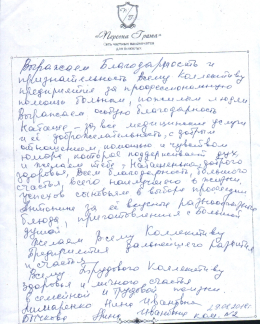 «Перена Грама»
Выражаем Благодарность и
признательность Всему Коллективу
предприятия за профессиональную
помощь больным, пожилым людям
Выражаем особую благодарность
Катюше - за все медицинские услуги
и её доброжелательность, с добрым
отношением, помощью и чувством
юмора, которое поддерживает дух
и желаем тебе
здоровья, Всем благодарность, большого
счастья, всего наилучшего в жизни,
успехов
за её вкусные разнообразные
блюда, приготовления с большой
душой.
Желаем Всему Коллективу
предприятия дальнейшего развития
и счастья.
Всему Трудового Коллективу
здоровья и личного счастья
в семейной и трудовой жизни.
Нина Ивановна
Бычкова Нина Ивановна